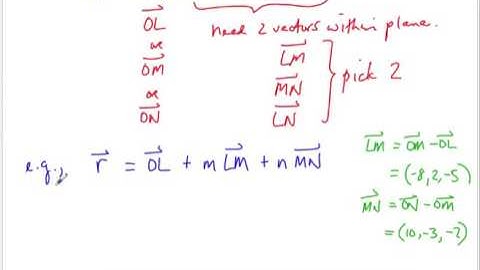 OL⃗ need 2 vectors within plane.
or
OM⃗ LM⃗
or MN⃗ } pick 2
ON⃗ LN⃗
e.g., r⃗ = OL⃗ + m LM⃗ + n MN⃗
LM⃗ = OM⃗ - OL⃗
= (-8, 2, -5)
MN⃗ = ON⃗ - OM⃗
= (10, -3, -2)